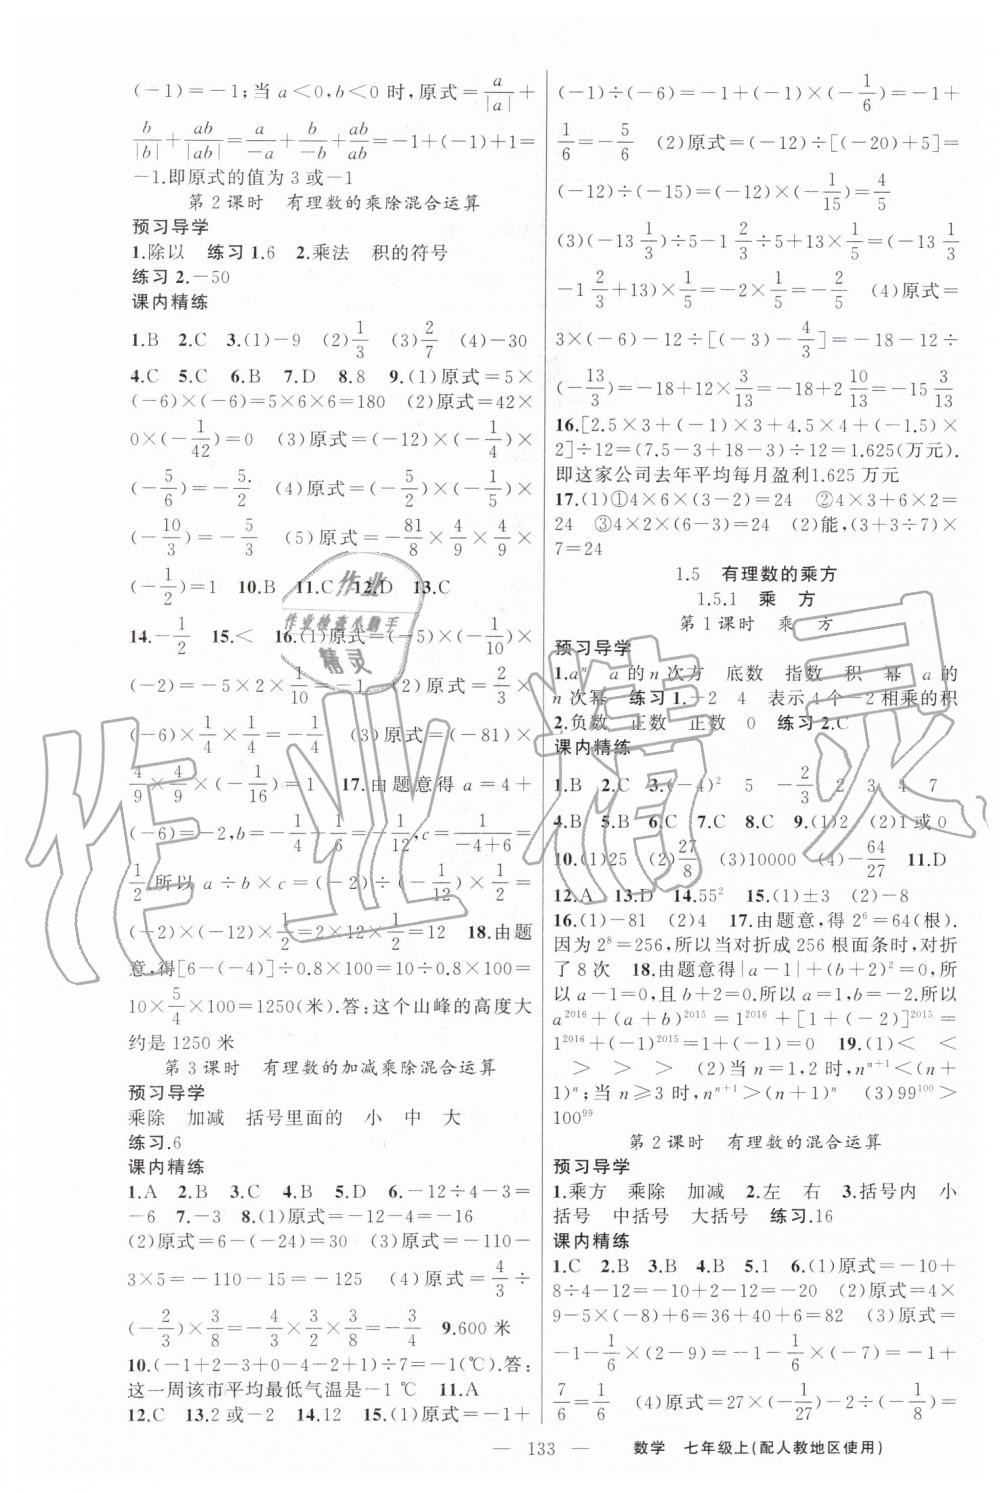 (-1)=-1;当 a<0,b<0 时,原式=a/|a|+
b/|b|+ab/|ab|=a/-a+b/-b+ab/ab=-1+(-1)+1=
-1.即原式的值为 3 或-1
第 2 课时 有理数的乘除混合运算
预习导学
1.除以 练习1.6 2.乘法 积的符号
练习2.-50
课内精练
1.B 2.C 3.(1)-9 (2)1/3 (3)2/7 (4)-30
4.C 5.C 6.B 7.D 8.8 9.(1)原式=5×
(-6)×(-6)=5×6×6=180 (2)原式=42×
0×(-1/42)=0 (3)原式=(-12)×(-1/4)×
(-5/6)=-5/2. (4)原式=(-5/2)×(-2/5)×
(-10/3)=-5/3 (5)原式=-81/8×4/9×4/9×
(-1/2)=1 10.B 11.C 12.D 13.C
14.-1/2 15.< 16.(1)原式=(-5)×(-1/10)×
(-2)=-5×2×1/10=-1 (2)原式=2/3×
(-6)×1/4×1/4=-1/4 (3)原式=(-81)×
4/9×4/9×(-1/16)=1 17.由题意得 a=4+
(-6)=-2,b=-1/4-1/6=-1/12,c=1/(-4+6)=
1/2.所以 a÷b×c=(-2)÷(-1/12)×1/2=
(-2)×(-12)×1/2=2×12×1/2=12 18.由题
意,得[6-(-4)]÷0.8×100=10÷0.8×100=
10×5/4×100=1250(米).答:这个山峰的高度大
约是 1250 米
第 3 课时 有理数的加减乘除混合运算
预习导学
乘除 加减 括号里面的 小 中 大
练习.6
课内精练
1.A 2.B 3.C 4.B 5.D 6.-12÷4-3=
-6 7.-3 8.(1)原式=-12-4=-16
(2)原式=6-(-24)=30 (3)原式=-110-
3×5=-110-15=-125 (4)原式=4/3÷
(-2/3)×3/8=-4/3×3/2×3/8=-3/4 9.600 米
10.(-1+2-3+0-4-2+1)÷7=-1(℃).答:
这一周该市平均最低气温是-1 ℃ 11.A
12.C 13.2 或-2 14.12 15.(1)原式=-1+
(-1)÷(-6)=-1+(-1)×(-1/6)=-1+
1/6=-5/6 (2)原式=(-12)÷[(-20)+5]=
(-12)÷(-15)=(-12)×(-1/15)=4/5
(3)(-13 1/3)÷5-1 2/3÷5+13×1/5=(-13 1/3
-1 2/3+13)×1/5=-2×1/5=-2/5 (4)原式=
3×(-6)-12÷[(-3)-4/3]=-18-12÷
(-13/3)=-18+12×3/13=-18+2 10/13=-15 3/13
16.[2.5×3+(-1)×3+4.5×4+(-1.5)×
2]÷12=(7.5-3+18-3)÷12=1.625(万元).
即这家公司去年平均每月盈利1.625 万元
17.(1)①4×6×(3-2)=24 ②4×3+6×2=
24 ③4×2×(6-3)=24 (2)能,(3+3÷7)×
7=24
1.5 有理数的乘方
1.5.1 乘 方
第 1 课时 乘 方
预习导学
1.aⁿ a 的 n 次方 底数 指数 积 幂 a 的
n 次幂 练习1.-2 4 表示 4 个-2 相乘的积
2.负数 正数 正数 0 练习2.C
课内精练
1.B 2.C 3.(-4)² 5 -2/3 2 3 4 7
4.B 5.B 6.C 7.C 8.C 9.(1)2 (2)1 或 0
10.(1)25 (2)27/8 (3)10000 (4)-64/27 11.D
12.A 13.D 14.55² 15.(1)±3 (2)-8
16.(1)-81 (2)4 17.由题意,得 2⁶=64(根).
因为 2⁸=256,所以当对折成 256 根面条时,对折
了 8 次 18.由题意得|a-1|+(b+2)²=0,所
以 a-1=0,且 b+2=0.所以 a=1,b=-2.所以
a²⁰¹⁶+(a+b)²⁰¹⁵=1²⁰¹⁶+[1+(-2)]²⁰¹⁵=
1²⁰¹⁶+(-1)²⁰¹⁵=1+(-1)=0 19.(1)< <
> > > (2)当 n=1,2 时,nⁿ⁺¹<(n+
1)ⁿ;当 n≥3 时,nⁿ⁺¹>(n+1)ⁿ (3)99¹⁰⁰>
100⁹⁹
第 2 课时 有理数的混合运算
预习导学
1.乘方 乘除 加减 2.左 右 3.括号内 小
括号 中括号 大括号 练习.16
课内精练
1.C 2.B 3.B 4.B 5.1 6.(1)原式=-10+
8÷4-12=-10+2-12=-20 (2)原式=4×
9-5×(-8)+6=36+40+6=82 (3)原式=
-1-1/6×(2-9)=-1-1/6×(-7)=-1+
7/6=1/6 (4)原式=27×(-1/27)-2÷(-1/8)=
— 133 — 数学 七年级上(配人教地区使用)
作业
作业检查小助手
精灵
作业精灵